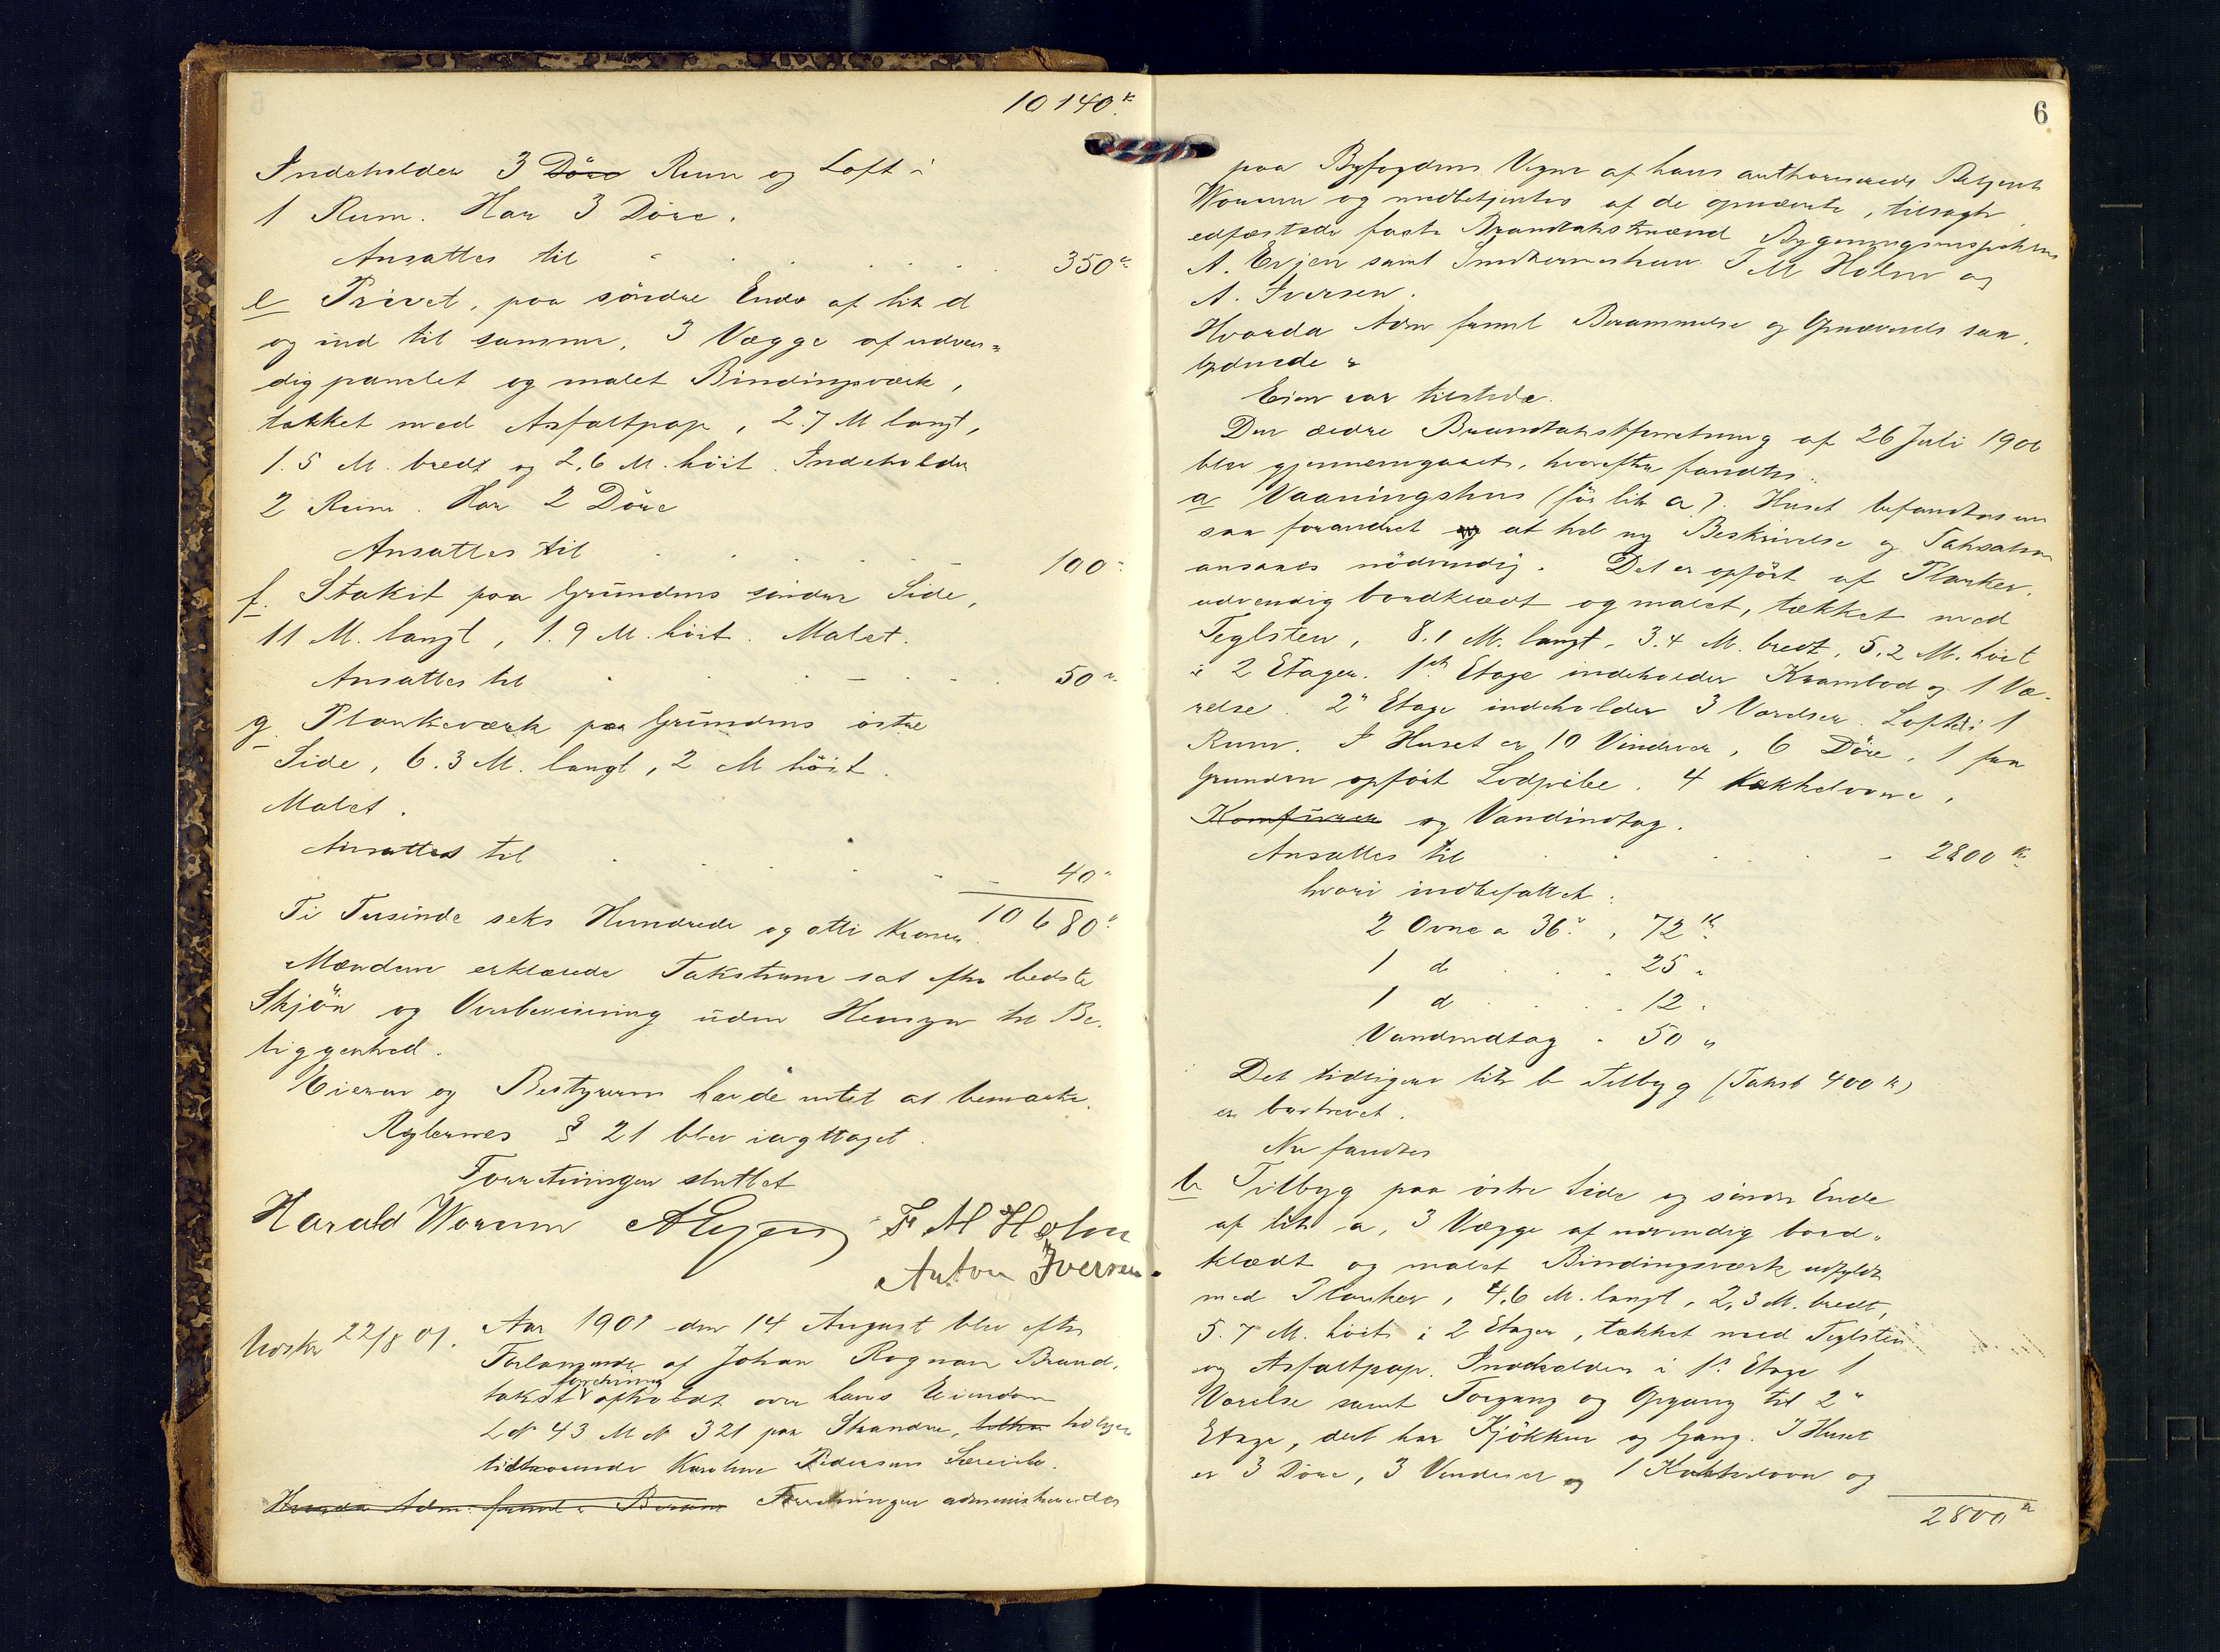 10140 k
Indeholder 3 Döre Rum og Loft i
1 Rum. Har 3 Döre.
Ansættes til 350 "
e Privet, paa söndre Ende af litr d
og ind til samme, 3 Vægge af udven-
dig panelet og malet Bindingsværk,
tækket med Asfaltpap, 2.7 M langt,
1.5 M. bredt og 2,6 M. höit. Indeholder
2 Rum. Har 2 Döre
Ansættes til 100 "
f. Stakit paa Grundens söndre Side,
11 M. langt, 1.9 M. höit. Malet.
Ansættes til 50 "
g. Plankeværk paa Grundens östre
Side, 6.3 M. langt, 2 M höit.
Malet.
Ansættes til 40 "
Ti Tusinde seks Hundrede og otti Kroner. 10680 "
Mændene erklærede Taksterne sat efter bedste
Skjön og Overbevisning uden Hensyn til Be-
liggenhed.
Eieren og Bestyreren havde intet at bemærke.
Reglernes § 21 blev iagttaget.
Forretningen sluttet
Harald Worum A Evjen F M Holm
Anton Iversen.
Udskr 22/8 01. Aar 1901 den 14 August blev efter
Forlangende af Johan Rognan Brand-
takstforretning afholdt over hans Eiendom
L N 43 M N 321 paa Stranden, tidligere
tilhørende Karoline Pedersens
Hvorda Adm: fremle Beram Forretningen administreredes
6
paa Byfogdens Vegne af hans authoriserede Betjent
Worum og medbetjentes af de opnævnte, tilsagte
edfæstede faste Brandtakstmænd Bygningsinspektør
A. Evjen samt Snedkermestrene F M Holm og
A. Iversen.
Hvorda Adm fremle Berammelse og Opnævnelse saa-
lydende "
Eieren var tilstede.
Den ældre Brandtakstforretning af 26 Juli 1900
blev gjennemgaaet, hvorefter fandtes:
a Vaaningshus (för litr a). Huset befandtes nu
saa forandret og at hel ny Beskrivelse og Taksation
ansaaes nödvendig. Det er opfört af Planker,
udvendig bordklædt og malet, tækket med
Teglsten, 8.1 M. langt, 3.4 M. bredt, 5.2 M. höit
i 2 Etager. 1ste Etage indeholder Krambod og 1 Væ-
relse. 2" Etage indeholder 3 Værelser. Loftet i 1
Rum. I Huset er 10 Vinduer, 6 Döre, 1 fra
Grunden opfört Lodpibe. 4 Kakkelovne,
Komfurer og Vandindtag.
Ansættes til 2800 K
hvori indbefattet:
2 Ovne a 36 " , 72 K
1 d 25 "
1 d 12 "
Vandindtag 50 "
Det tidligere litr b Tilbyg (Takst 400 K)
er bortrevet.
Nu fandtes
b Tilbyg paa östre Side og söndre Ende
af litr a, 3 Vægge af udvendig bord-
klædt og malet Bindingsværk udfyldt
med Planker, 4,6 M. langt, 2,3 M. bredt,
5.7 M. höit i 2 Etager, tækket med Teglsten
og Asfaltpap. Indeholder i 1ste Etage 1
Værelse samt Forgang og Opgang til 2"
Etage, der har Kjökken og Gang. I Huset
er 3 Döre, 3 Vinduer og 1 Kakkelovn og
2800 K